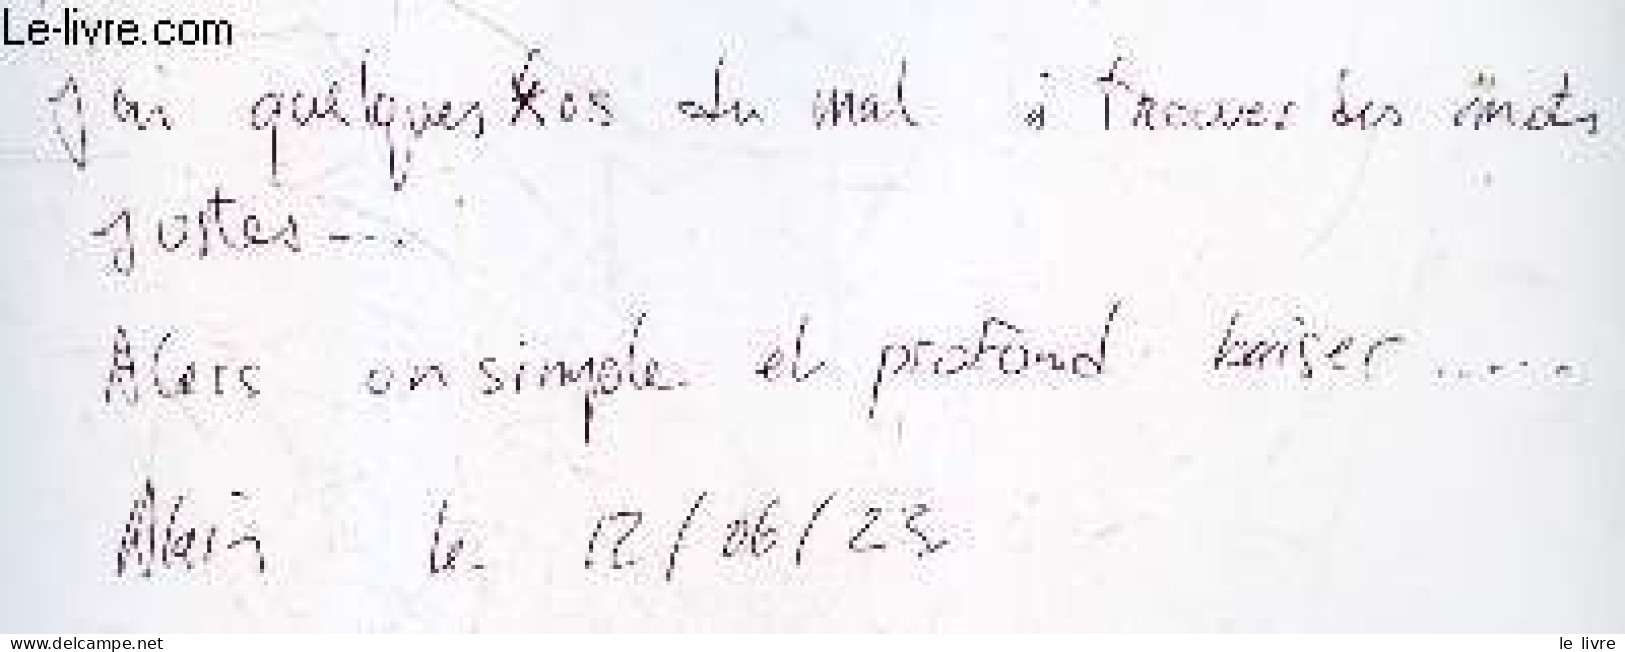 Le-livre.com
J'ai quelques fois du mal à trouver les mots
justes....
Alors un simple et profond baiser......
Alain le 12/06/23
www.delcampe.net
le livre